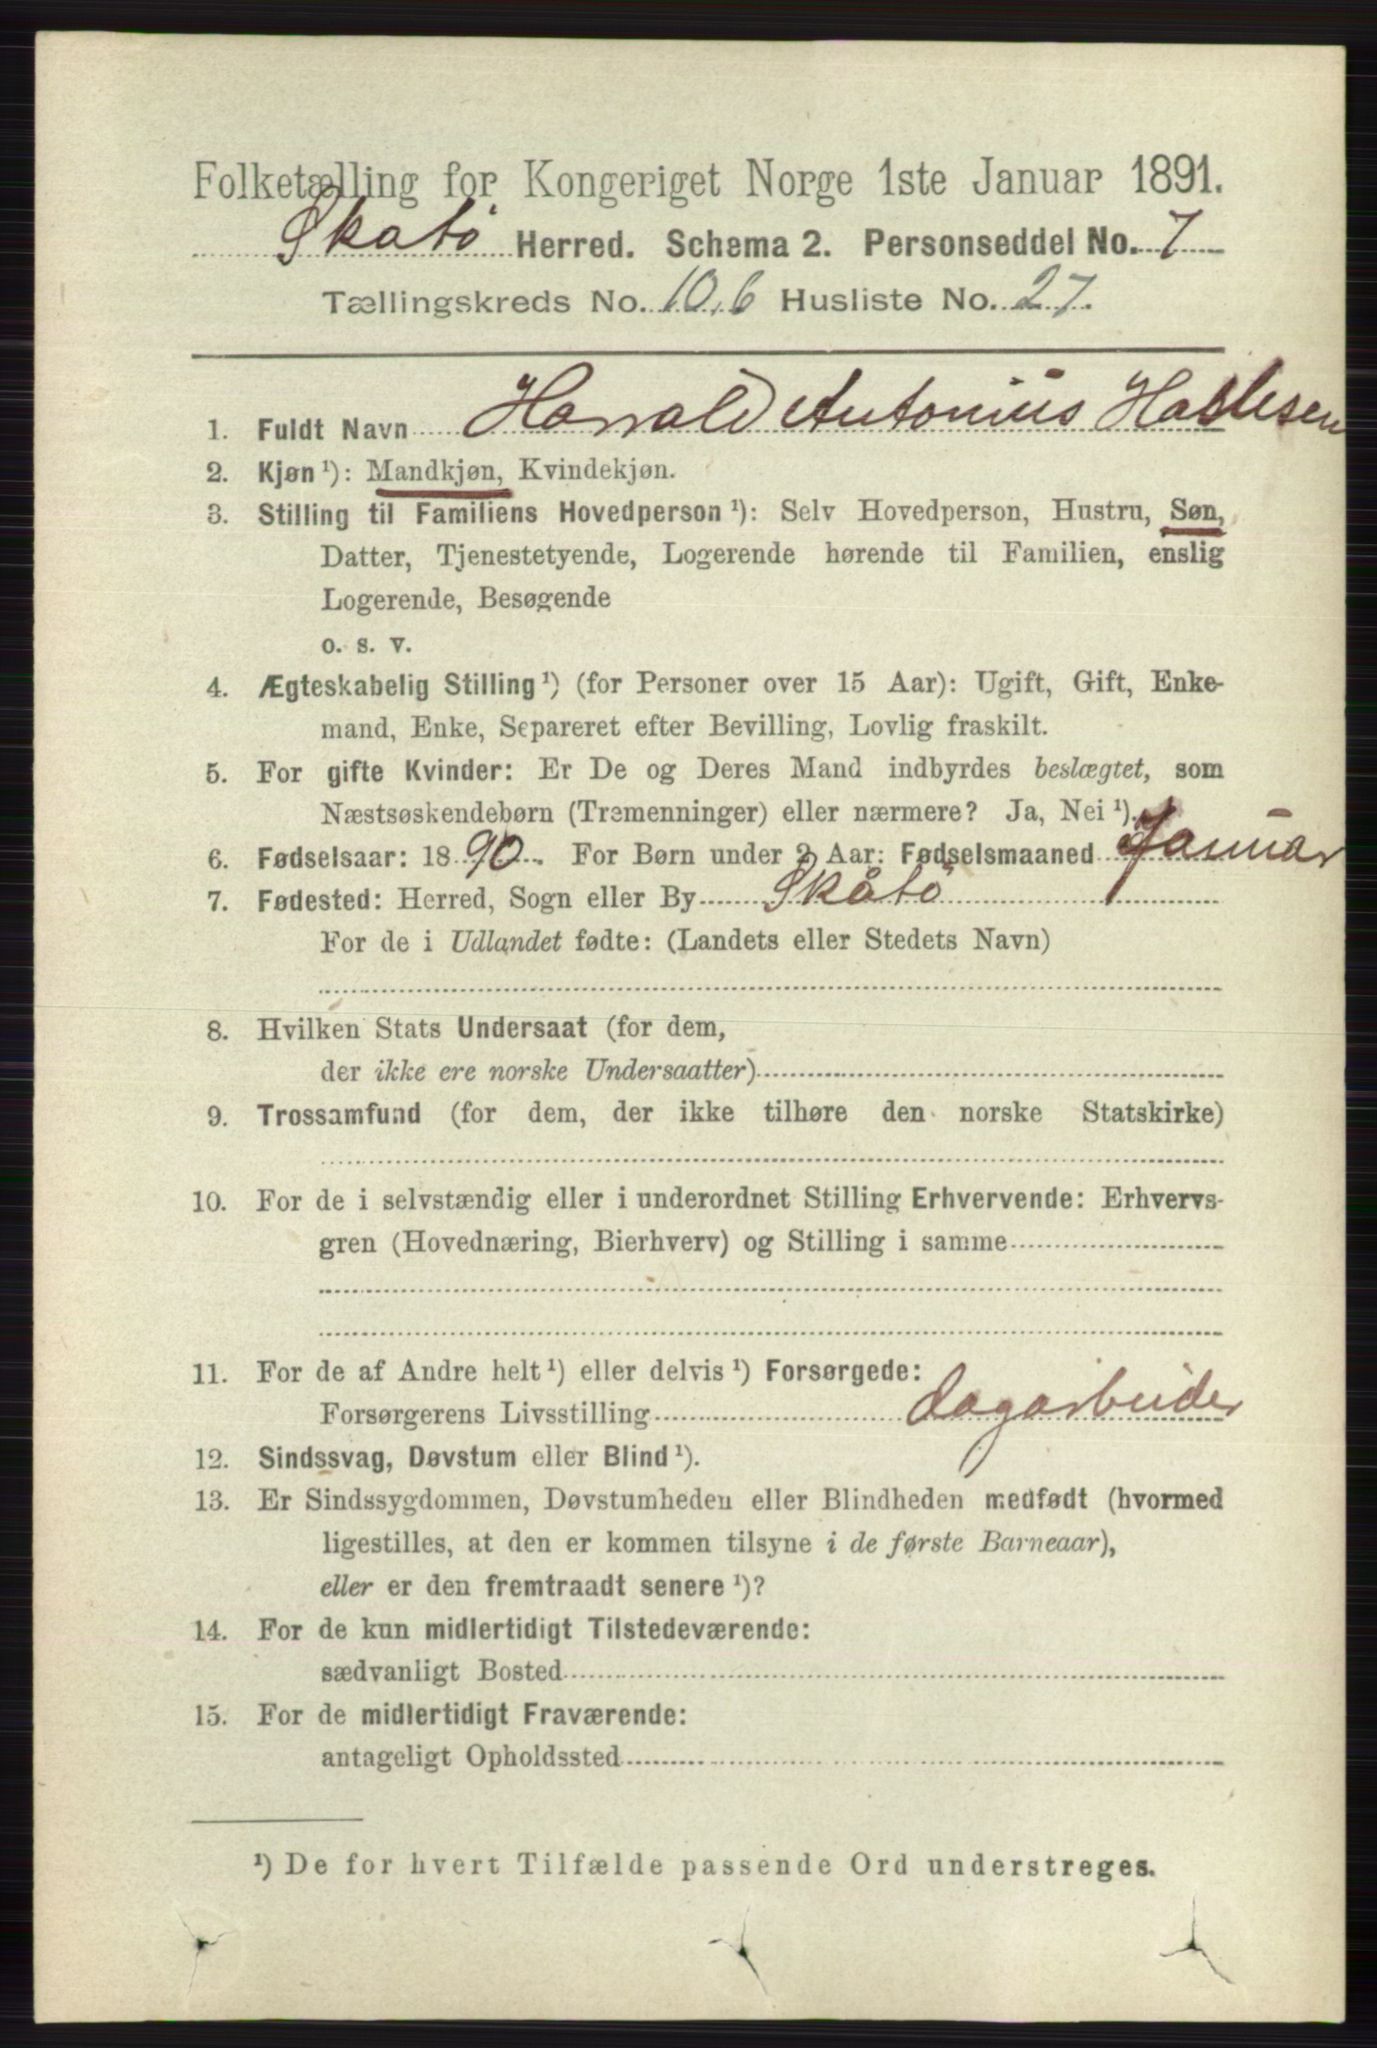 Folketælling for Kongeriget Norge 1ste Januar 1891.
Skatø Herred. Schema 2. Personseddel No. 7
Tællingskreds No. 10,6 Husliste No. 27.
1. Fuldt Navn Harald Antonius
2. Kjøn ¹): Mandkjøn, Kvindekjøn.
3. Stilling til Familiens Hovedperson ¹): Selv Hovedperson, Hustru, Søn,
Datter, Tjenestetyende, Logerende hørende til Familien, enslig
Logerende, Besøgende
o. s. v.
4. Ægteskabelig Stilling ¹) (for Personer over 15 Aar): Ugift, Gift, Enke-
mand, Enke, Separeret efter Bevilling, Lovlig fraskilt.
5. For gifte Kvinder: Er De og Deres Mand indbyrdes beslægtet, som
Næstsøskendebørn (Tremenninger) eller nærmere? Ja, Nei ¹).
6. Fødselsaar: 1890. For Børn under 2 Aar: Fødselsmaaned Januar
7. Fødested: Herred, Sogn eller By Skåtø
For de i Udlandet fødte: (Landets eller Stedets Navn)
8. Hvilken Stats Undersaat (for dem,
der ikke ere norske Undersaatter)
9. Trossamfund (for dem, der ikke tilhøre den norske Statskirke)
10. For de i selvstændig eller i underordnet Stilling Erhvervende: Erhvervs-
gren (Hovednæring, Bierhverv) og Stilling i samme
11. For de af Andre helt ¹) eller delvis ¹) Forsørgede:
Forsørgerens Livsstilling dagarbeider
12. Sindssvag, Døvstum eller Blind ¹).
13. Er Sindssygdommen, Døvstumheden eller Blindheden medfødt (hvormed
ligestilles, at den er kommen tilsyne i de første Barneaar),
eller er den fremtraadt senere ¹)?
14. For de kun midlertidigt Tilstedeværende:
sædvanligt Bosted
15. For de midlertidigt Fraværende:
antageligt Opholdssted
¹) De for hvert Tilfælde passende Ord understreges.